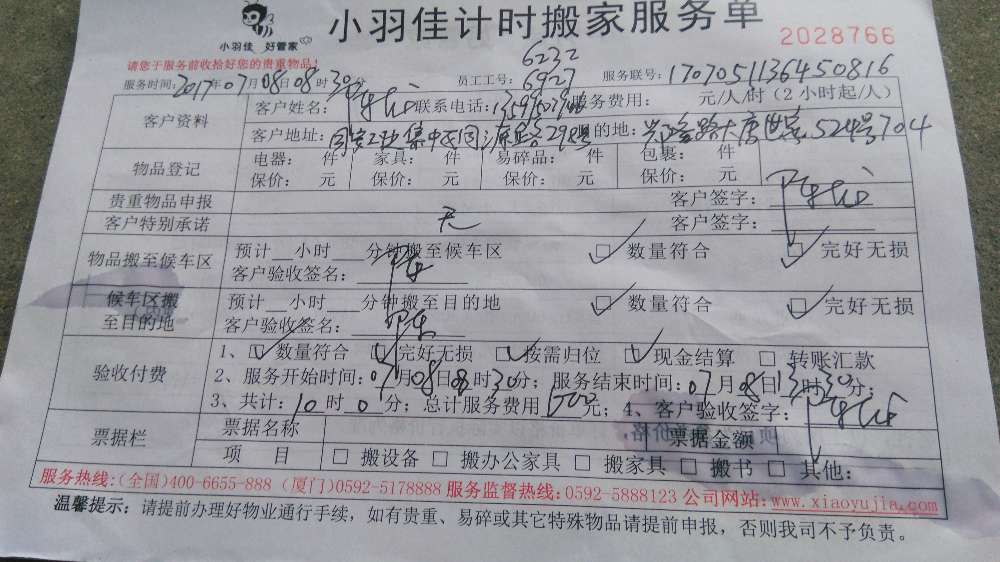 小羽佳计时搬家服务单
小羽佳 好管家
2028766
请您于服务前收拾好您的贵重物品!
6232
服务时间:2017年07月08日08时30分 员工工号:6927 服务联号:170705113645０816
客户资料 客户姓名: 联系电话: 服务费用: 元/人/时(2小时起/人)
客户地址: 目的地: 524号704
物品登记 电器: 件 家具: 件 易碎品: 件 包裹: 件
保价: 元 保价: 元 保价: 元 保价: 元
贵重物品申报 客户签字:
客户特别承诺 无 客户签字:
物品搬至候车区 预计__小时___分钟搬至候车区 数量符合 完好无损
客户验收签名:
候车区搬至目的地 预计__小时___分钟搬至目的地 数量符合 完好无损
客户验收签名:
验收付费 1、数量符合 完好无损 按需归位 现金结算 转账汇款
2、服务开始时间:07月08日08时30分; 服务结束时间:07月08日13时30分;
3、共计:10时0分; 总计服务费用600元; 4、客户验收签字:
票据栏 票据名称 票据金额
项目 搬设备 搬办公家具 搬家具 搬书 其他:
服务热线:(全国)400-6655-888 (厦门)0592-5178888 服务监督热线:0592-5888123 公司网站:www.xiaoyujia.com
温馨提示:请提前办理好物业通行手续,如有贵重、易碎或其它特殊物品请提前申报,否则我司不予负责。